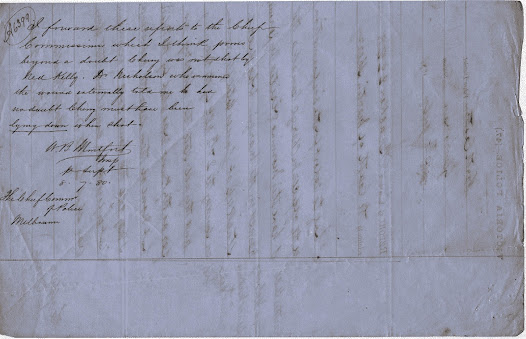 A6399
I forward these reports to the Chief
Commissioner which I think prove
beyond a doubt Cherry was not shot by
Ned Kelly. Dr Nicholson who examined
the wound externally told me he had
no doubt Cherry must have been
lying down when shot.
W B Montfort
Insp
8 . 7 . 80
The Chief Commr
of Police
Melbourne